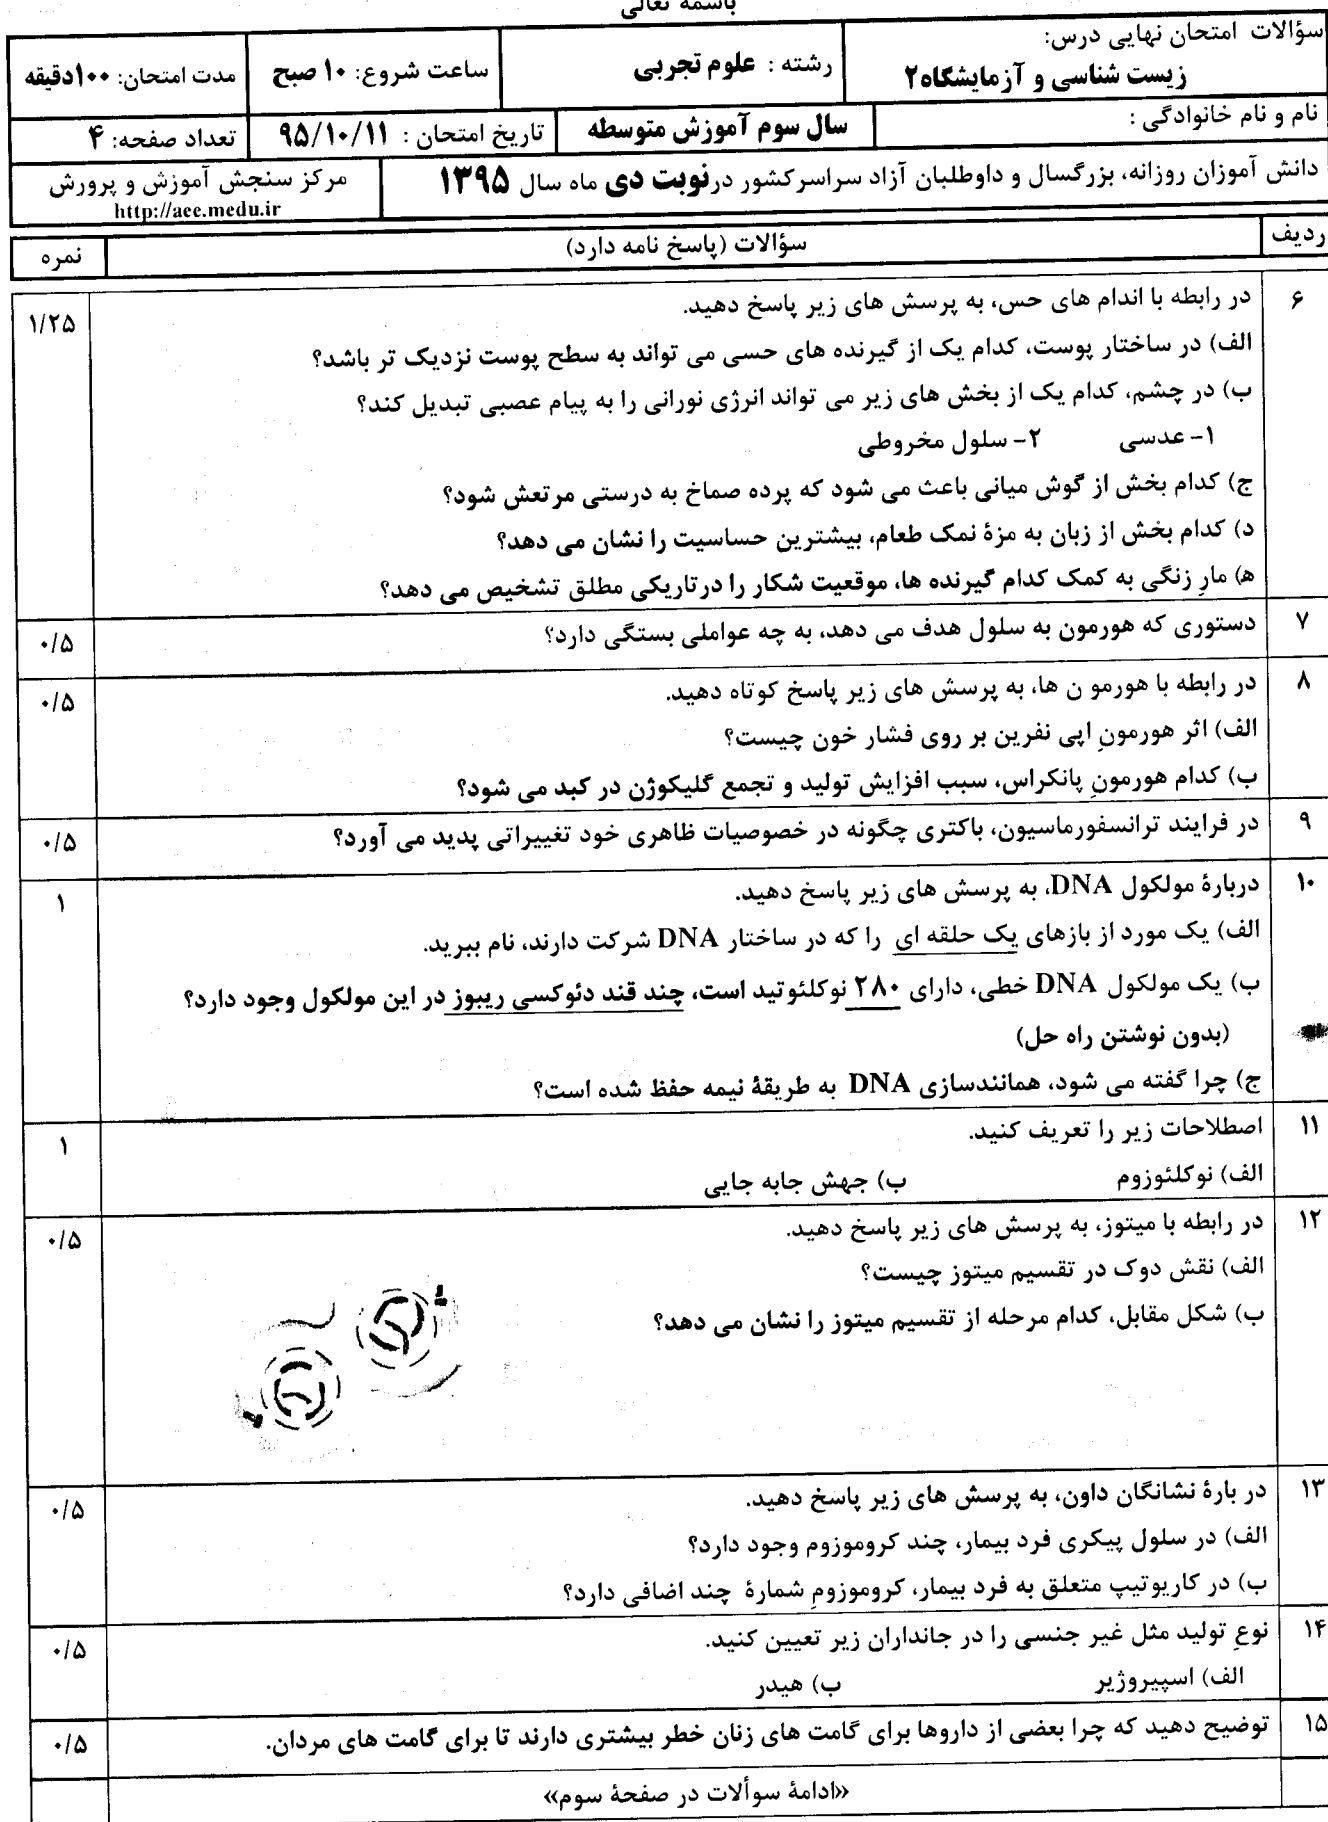 باسمه تعالی
سؤالات امتحان نهایی درس:
زیست شناسی و آزمایشگاه۲
رشته : علوم تجربی
ساعت شروع: ۱۰ صبح
مدت امتحان: ۱۰۰دقیقه
نام و نام خانوادگی :
سال سوم آموزش متوسطه
تاریخ امتحان : ۹۵/۱۰/۱۱
تعداد صفحه: ۴
دانش آموزان روزانه، بزرگسال و داوطلبان آزاد سراسرکشور درنوبت دی ماه سال ۱۳۹۵
مرکز سنجش آموزش و پرورش
http://aee.medu.ir
ردیف
سؤالات (پاسخ نامه دارد)
نمره
۶
در رابطه با اندام های حس، به پرسش های زیر پاسخ دهید.
۱/۲۵
الف) در ساختار پوست، کدام یک از گیرنده های حسی می تواند به سطح پوست نزدیک تر باشد؟
ب) در چشم، کدام یک از بخش های زیر می تواند انرژی نورانی را به پیام عصبی تبدیل کند؟
۱- عدسی ۲- سلول مخروطی
ج) کدام بخش از گوش میانی باعث می شود که پرده صماخ به درستی مرتعش شود؟
د) کدام بخش از زبان به مزۀ نمک طعام، بیشترین حساسیت را نشان می دهد؟
ه) مارِ زنگی به کمک کدام گیرنده ها، موقعیت شکار را درتاریکی مطلق تشخیص می دهد؟
۷
دستوری که هورمون به سلول هدف می دهد، به چه عواملی بستگی دارد؟
۰/۵
۸
در رابطه با هورمو ن ها، به پرسش های زیر پاسخ کوتاه دهید.
۰/۵
الف) اثر هورمونِ اپی نفرین بر روی فشار خون چیست؟
ب) کدام هورمونِ پانکراس، سبب افزایش تولید و تجمع گلیکوژن در کبد می شود؟
۹
در فرایند ترانسفورماسیون، باکتری چگونه در خصوصیات ظاهری خود تغییراتی پدید می آورد؟
۰/۵
۱۰
دربارۀ مولکول DNA، به پرسش های زیر پاسخ دهید.
۱
الف) یک مورد از بازهای یک حلقه ای را که در ساختار DNA شرکت دارند، نام ببرید.
ب) یک مولکول DNA خطی، دارای ۲۸۰ نوکلئوتید است، چند قند دئوکسی ریبوز در این مولکول وجود دارد؟
(بدون نوشتن راه حل)
ج) چرا گفته می شود، همانندسازی DNA به طریقۀ نیمه حفظ شده است؟
۱۱
اصطلاحات زیر را تعریف کنید.
۱
الف) نوکلئوزوم ب) جهش جابه جایی
۱۲
در رابطه با میتوز، به پرسش های زیر پاسخ دهید.
۰/۵
الف) نقش دوک در تقسیم میتوز چیست؟
ب) شکل مقابل، کدام مرحله از تقسیم میتوز را نشان می دهد؟
۱۳
در بارۀ نشانگان داون، به پرسش های زیر پاسخ دهید.
۰/۵
الف) در سلول پیکری فرد بیمار، چند کروموزوم وجود دارد؟
ب) در کاریوتیپ متعلق به فرد بیمار، کروموزومِ شمارۀ چند اضافی دارد؟
۱۴
نوعِ تولید مثل غیر جنسی را در جانداران زیر تعیین کنید.
۰/۵
الف) اسپیروژیر ب) هیدر
۱۵
توضیح دهید که چرا بعضی از داروها برای گامت های زنان خطر بیشتری دارند تا برای گامت های مردان.
۰/۵
«ادامۀ سوألات در صفحۀ سوم»